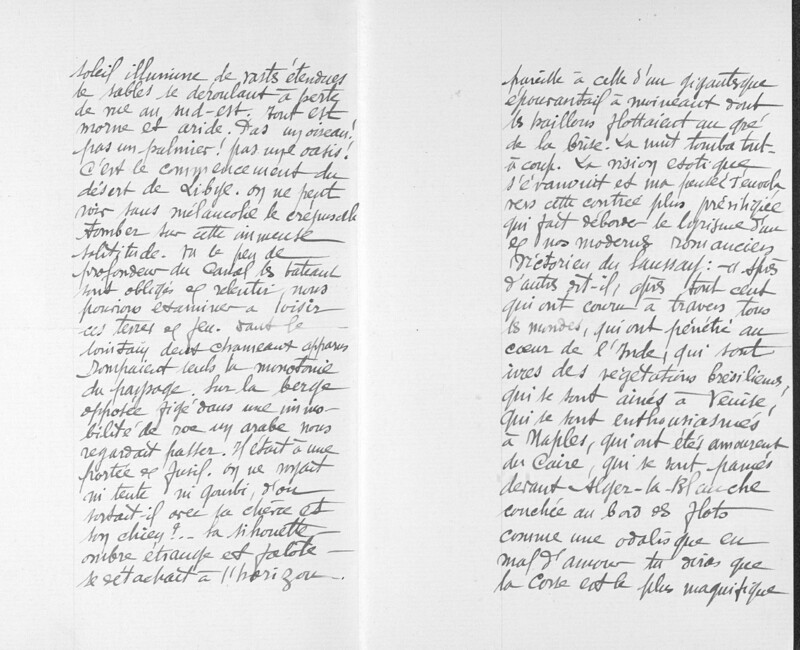 soleil illumine de vastes étendues
de sables se déroulant à perte
de vue au sud-est. Tout est
morne et aride. Pas un oiseau!
pas un palmier! pas une oasis!
C'est le commencement du
désert de Libye. on ne peut
voir sans mélancolie le crépuscule
tomber sur cette immense
solitude. Vu le peu de
profondeur du Canal les bateaux
sont obligés de ralentir, nous
pouvions examiner à loisir
ces terres de feu. Dans le
lointain deux chameaux apparus
rompaient seuls la monotonie
du paysage. Sur la berge
opposée figé dans une immo-
bilité de roc un arabe nous
regardait passer. Il était à une
portée de fusil. on ne voyait
ni tente ni gourbi, d'où
sortait-il avec sa chèvre et
son chien?.. sa silhouette
ombre étrange et falote
se détachait à l'horizon.
pareille à celle d'un gigantesque
épouvantail à moineaux dont
les haillons flottaient au gré
de la brise. La nuit tomba tout-
à coup. La vision exotique
s'évanouit et ma pensée s'envola
vers cette contrée plus privilégiée
qui fait déborder le lyrisme d'un
de nos modernes romanciers
Victorien du Saussay: - "Après
d'autres dit-il, après tout ceux
qui ont couru à travers tous
les mondes, qui ont pénétré au
cœur de l'Inde, qui sont
ivres des végétations brésiliennes,
qui se sont aimés à Venise,
qui se sont enthousiasmés
à Naples, qui ont été amoureux
du Caire, qui se sont pâmés
devant Alger-la-Blanche
couchée au bord des flots
comme une odalisque en
mal d'amour tu diras que
la Corse est le plus magnifique